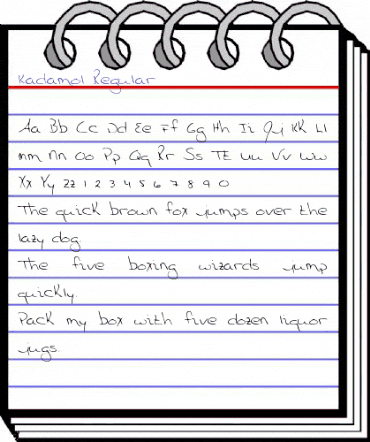 Kadamol Regular
Aa Bb Cc Dd Ee Ff Gg Hh Ii Jj KK Ll
mm nn Oo Pp Qq Rr Ss TE uu Vv ww
Xx Yy zz 1 2 3 4 5 6 7 8 9 0
The quick brown fox jumps over the
lazy dog
The five boxing wizards jump
quickly.
Pack my box with five dozen liquor
jugs.